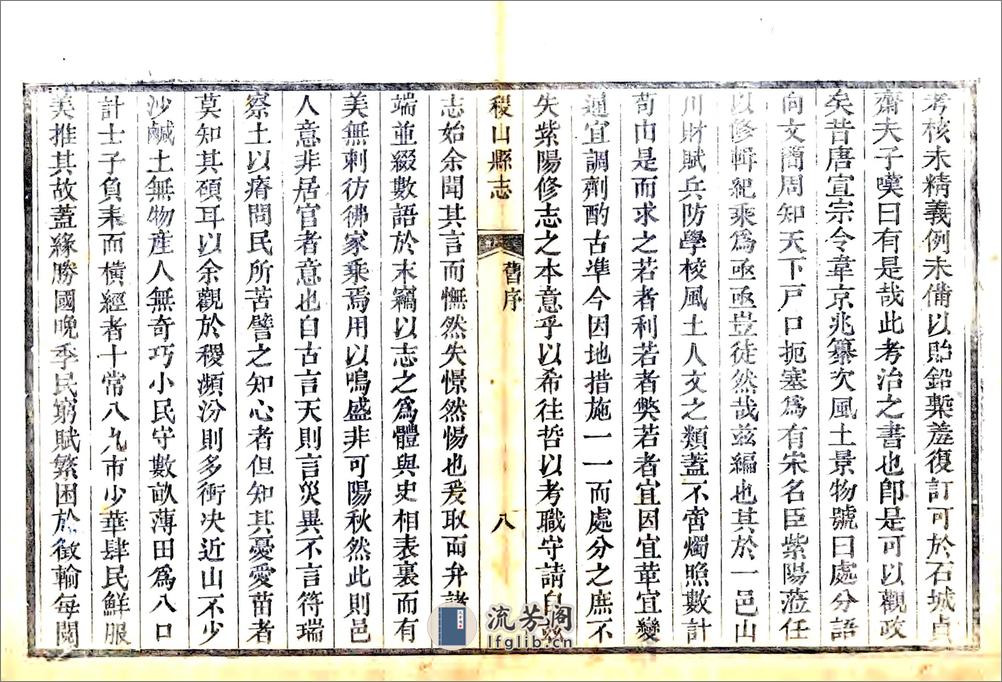 考核未精義例未備以貽鉛槧羞復訂可於石城貞
齋夫子嘆曰有是哉此考治之書也卽是可以觀政
矣昔唐宣宗令韋京兆纂次風土景物號曰處分語
向文簡周知天下戸口扼塞爲有宋名臣紫陽蒞任
以修輯紀乘爲亟亟豈徒然哉兹編也其於一邑山
川財賦兵防學校風土人文之類蓋不啻燭照數計
苟由是而求之若者利若者獘若者宜因宜革宜變
通宜調劑酌古凖今因地措施一一而處分之庶不
失紫陽修志之本意乎以希往哲以考職守請自
稷山縣志
舊序
八
志始余聞其言而憮然失憬然惕也爰取而弁諸
端並綴數語於末竊以志之爲體與史相表裏而有
美無刺彷彿家乘焉用以鳴盛非可陽秋然此則邑
人意非居官者意也自古言天則言災異不言符瑞
察土以瘠問民所苦譬之知心者但知其憂愛苗者
莫知其碩耳以余觀於稷瀕汾則多衝决近山不少
沙鹹土無物産人無奇巧小民守數畝薄田爲八口
計士子負耒而橫經者十常八九市少華肆民鮮服
美推其故蓋緣勝國晚季民窮賦繁困於徵輸每閱
流芳阁
lfglib.cn